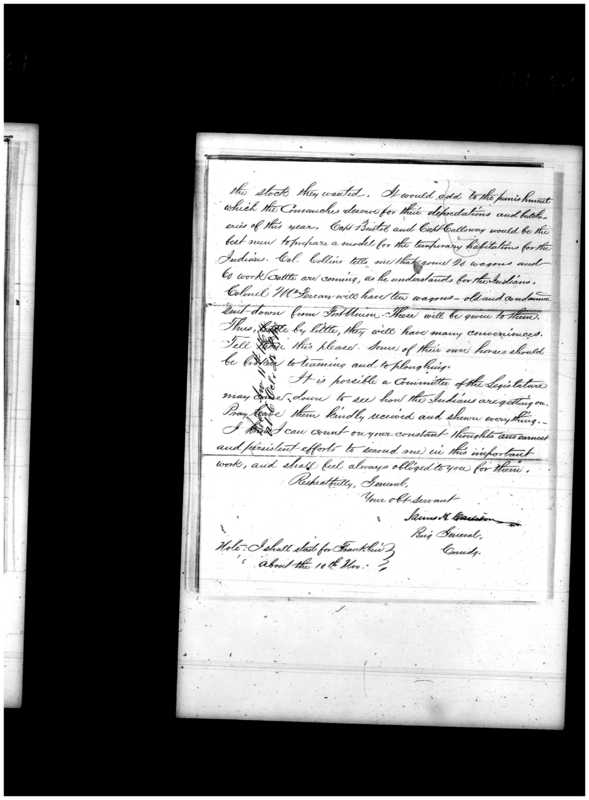 the stock they wanted. It would add to the punishment
which the Comanches deserve for their depredations and butch-
eries of this year. Capt Bristol and Capt Calloway would be the
best men to prepare a model for the temporary habitations for the
Indians. Col. Collins tells me that some 20 wagons and
60 work cattle are coming, as he understands for the Indians.
Colonel McFerran will have ten wagons - old and condemned
sent down from Fort Union. These will be given to them.
Thus, little by little, they will have many conveniences.
Tell this please. Some of their own horses should
be broken to teaming and to ploughing.
It is possible a Committee of the Legislature
may come down to see how the Indians are getting on.
Pray have them kindly received and shewn everything.
I know I can count on your constant thoughts and earnest
and persistent efforts to second me in this important
work, and shall feel always obliged to you for them.
Respectfully, General,
Your obt servant
James H. Carleton
Brig General,
Comdg.
Note - I shall start for Franklin
about the 10th Nov.